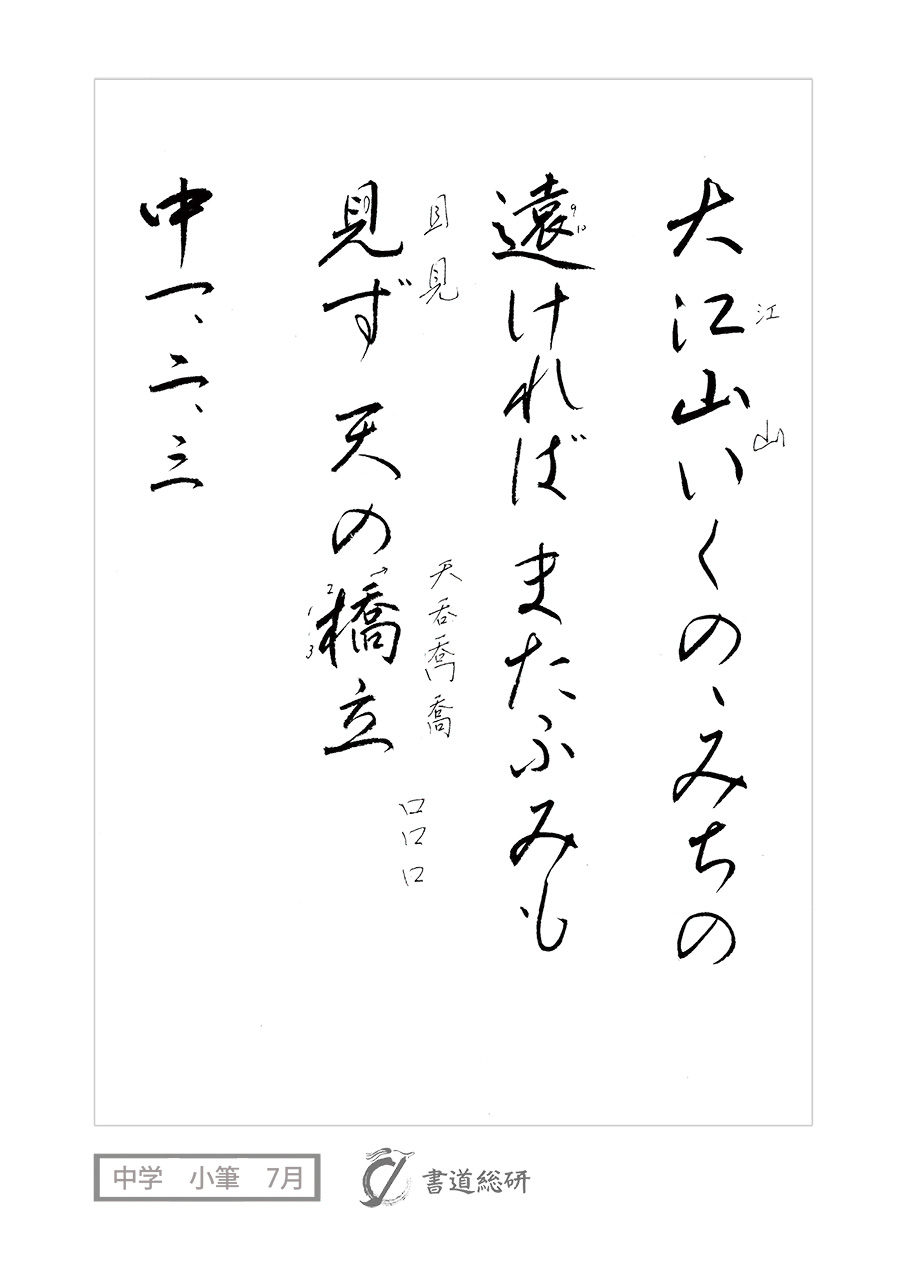 大江山いくのゝみちの
江
山
遠ければまたふみも
9 10
見ず 天の橋立
目 見
天 呑 喬 喬
口 口 口
1 2 3
中一、二、三
中学 小筆 7月
書道総研